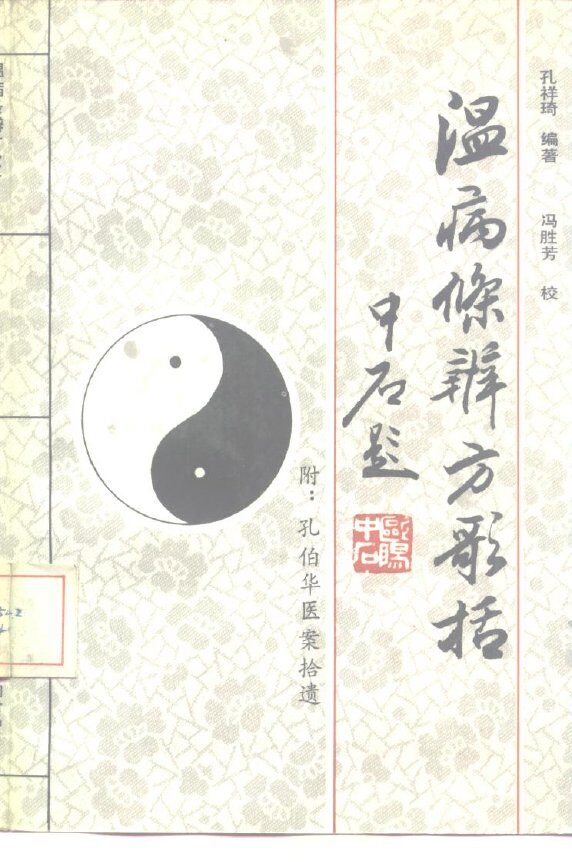 孔祥琦 编著 冯胜芳 校
温病條辨方歌括
中石题
附：孔伯华医案拾遗
歐陽中石